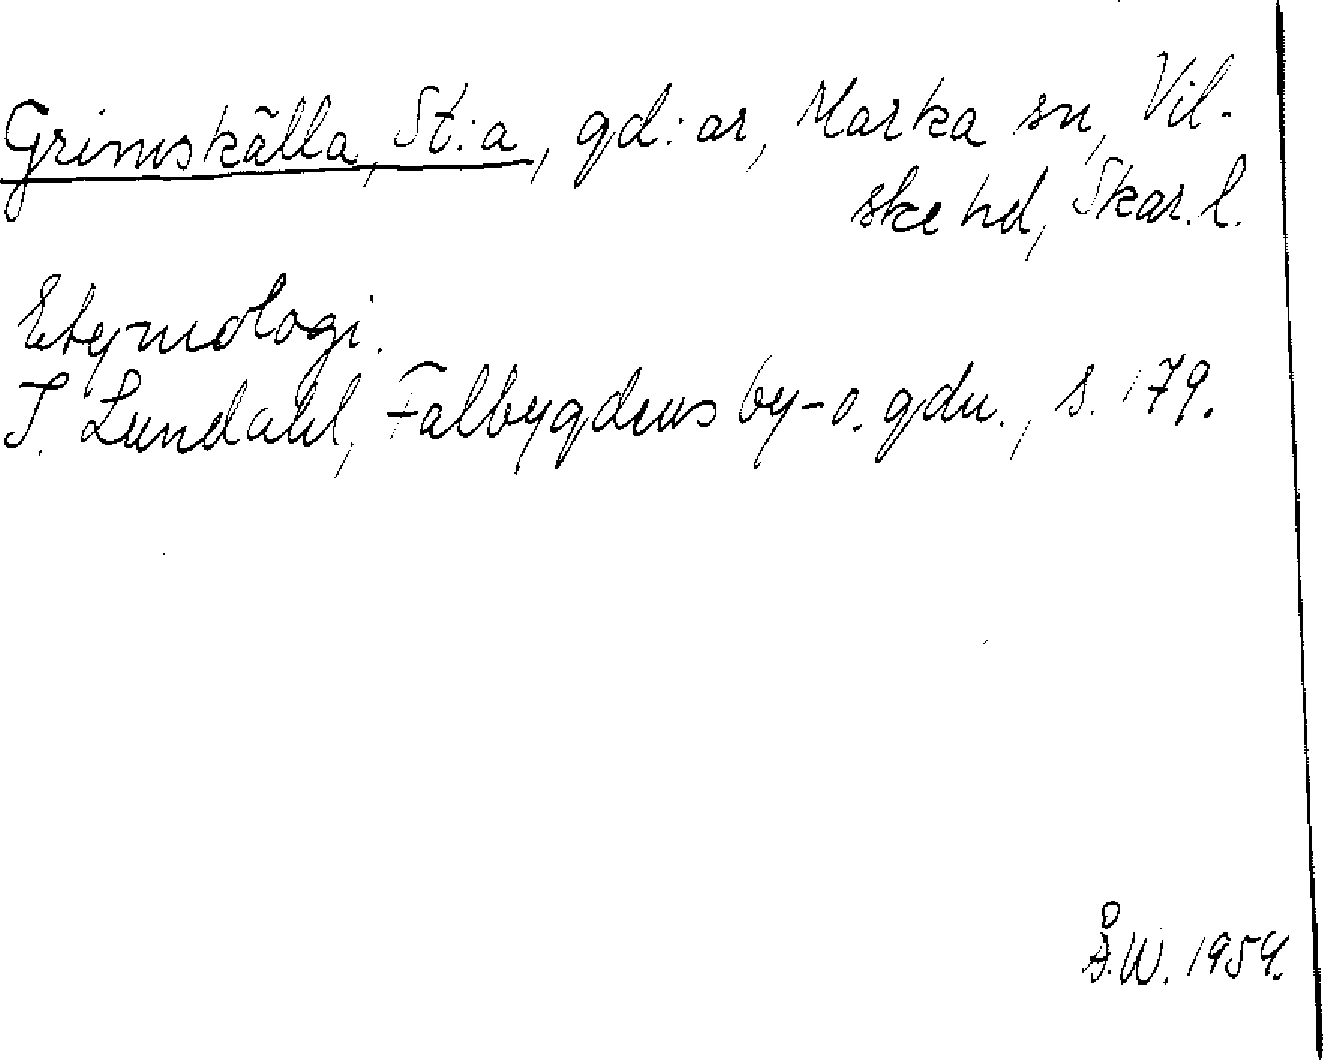 Grimskälla, St:a, gd:ar, Marka sn, Vil-
ske hd, Skar. l.
Etymologi.
I. Lundahl, Falbygdens by- o. gdn., s. 179.
Å.W. 1954.